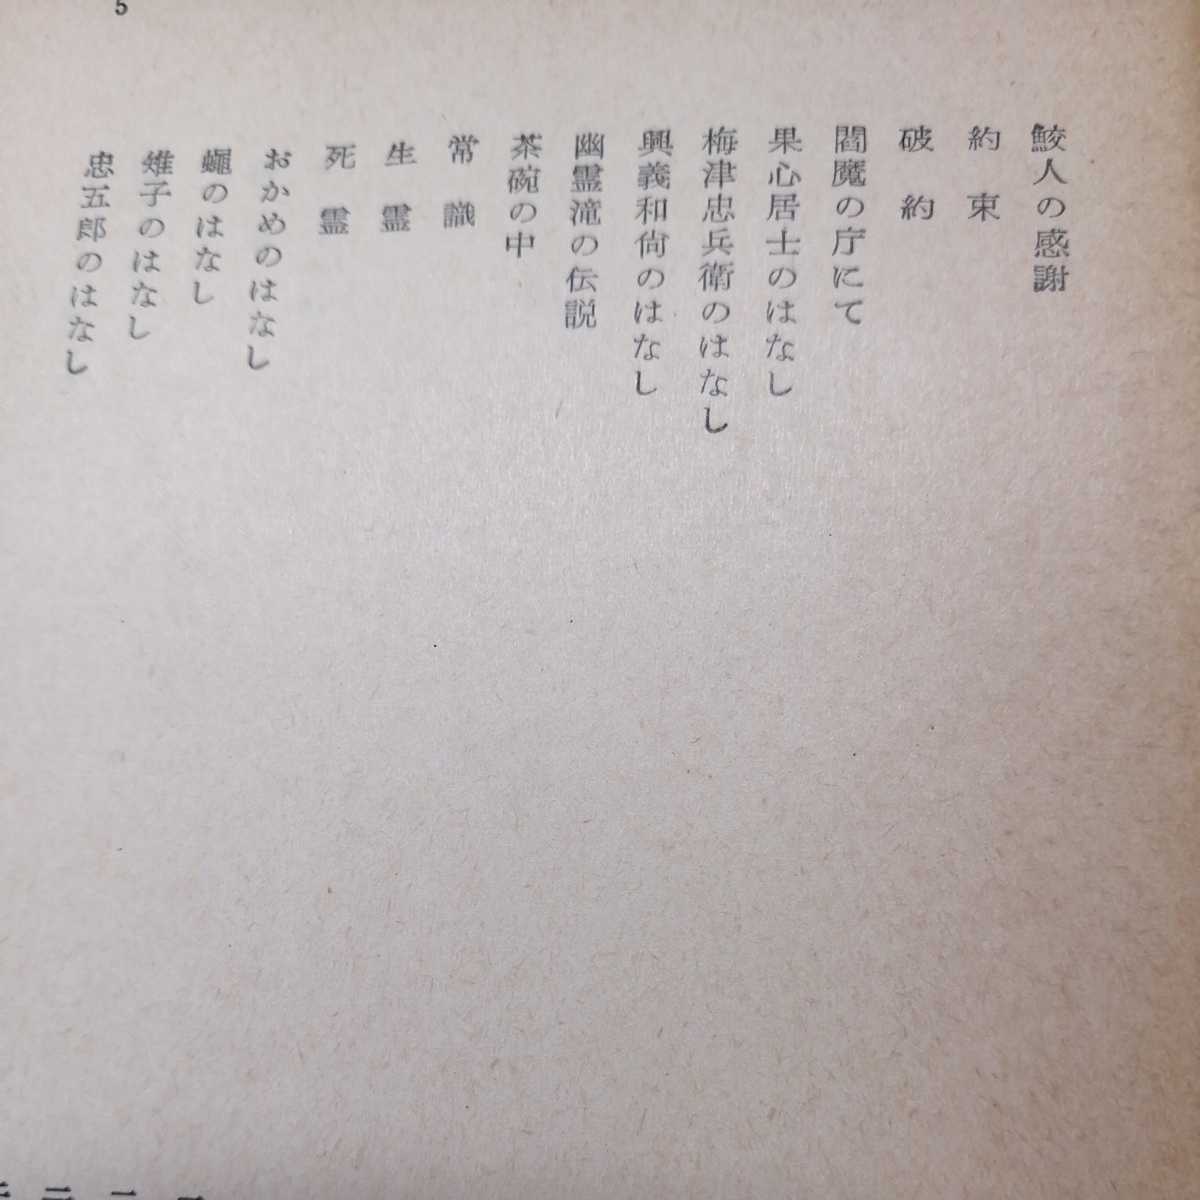 5
鮫人の感謝
約束
破約
閻魔の庁にて
果心居士のはなし
梅津忠兵衛のはなし
興義和尙のはなし
幽霊滝の伝説
茶碗の中
常識
生霊
死霊
おかめのはなし
蠅のはなし
雉子のはなし
忠五郎のはなし